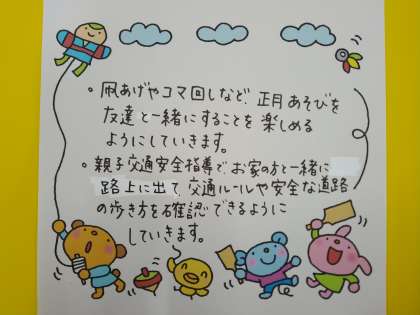 ・凧あげやコマ回しなど、正月あそびを
友達と一緒にすることを楽しめる
ようにしていきます。
・親子交通安全指導でお家の方と一緒に
路上に出て、交通ルールや安全な道路
の歩き方を確認できるように
していきます。